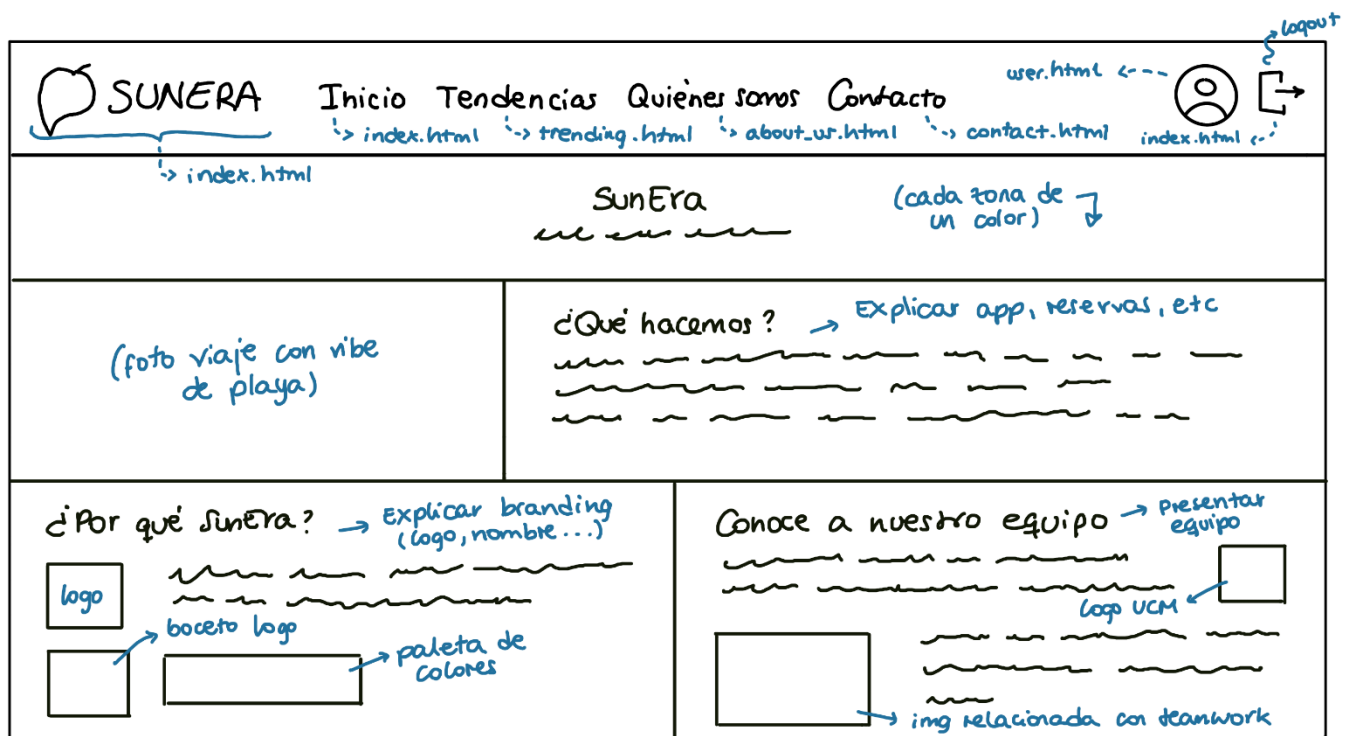 logout
SUNERA Inicio Tendencias Quiénes somos Contacto
user.html
index.html trending.html about_us.html contact.html index.html
index.html
SunEra
(cada zona de
un color)
(foto viaje con vibe
de playa)
¿Qué hacemos? → Explicar app, reservas, etc
¿Por qué SunEra? → Explicar branding
(logo, nombre...)
logo
boceto logo
paleta de
colores
Conoce a nuestro equipo → Presentar
equipo
logo UCM
img relacionada con teamwork